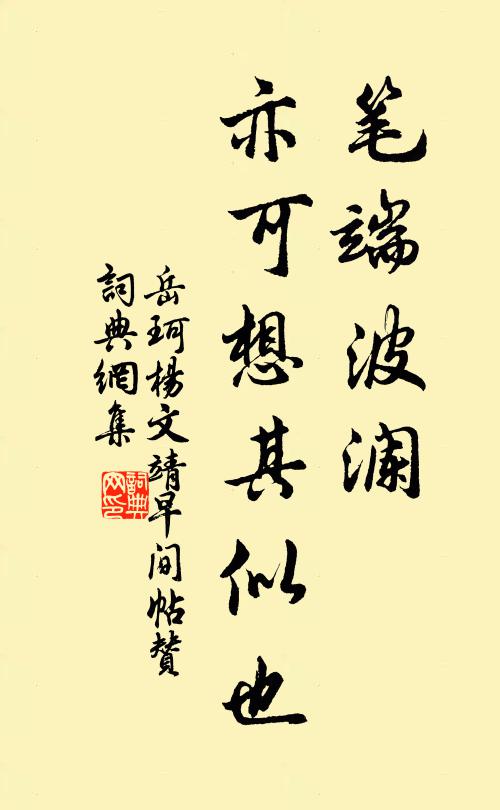 笔端波澜
亦可想其似也
岳珂杨文靖早间帖赞
词典网集
词典网印